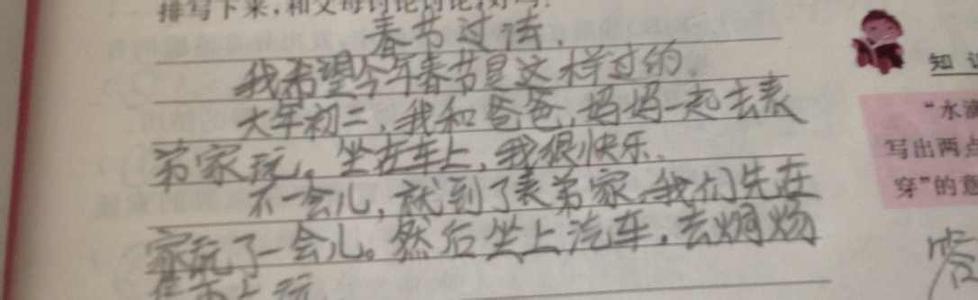 排写下来,和父母讨论讨论,好吗?
春节过法.
我希望今年春节是这样过的.
大年初三,我和爸爸,妈妈一起去表
弟家玩。坐在车上,我很快乐.
不一会儿,就到了表弟家,我们先在
家玩了一会儿。然后坐上汽车,去
上玩
知
"水
写出两点
穿"的意